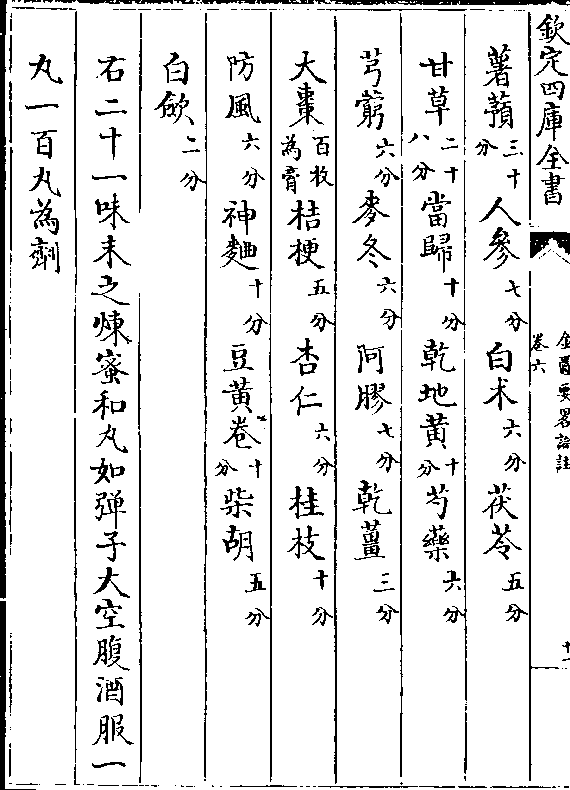 欽定四庫全書
金匱要畧論註
卷六
十一
薯蕷三十分 人參七分 白朮六分 茯苓五分
甘草二十八分 當歸十分 乾地黄十分 芍藥六分
芎藭六分 麥冬六分 阿膠七分 乾薑三分
大棗百枚為膏 桔梗五分 杏仁六分 桂枝十分
防風六分 神麯十分 豆黄卷十分 柴胡五分
白斂二分
右二十一味末之煉蜜和丸如弹子大空腹酒服一
丸一百丸為劑